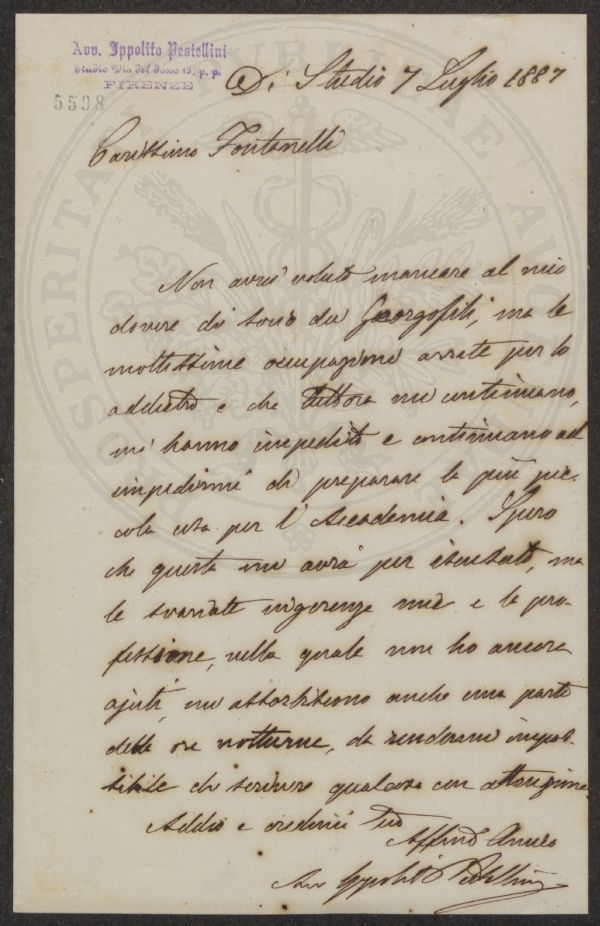 Avv. Ippolito Pestellini
Studio Via del Sosso 15, p. p.
FIRENZE
5598
Di Studio 7 Luglio 1887
Carissimo Fontanelli
Non avrei voluto mancare al mio
dovere di socio dei Georgofili, ma le
moltissime occupazioni avute per lo
addietro e che tuttora mi continuano,
mi hanno impedito e continuano ad
impedirmi di preparare la più pic-
cola cosa per l'Accademia. Spero
che questa mi avrà per iscusato, ma
le svariate ingerenze mie e la pro-
fessione, nella quale non ho ancora
ajuti, mi assorbiscono anche una parte
delle ore notturne, da rendermi impos-
sibile di scrivere qualcosa con attenzione.
Addio e credimi tuo
Affmo Amico
Avv Ippolito Pestellini
PROSPERITATI PUBLICAE AUGENDAE